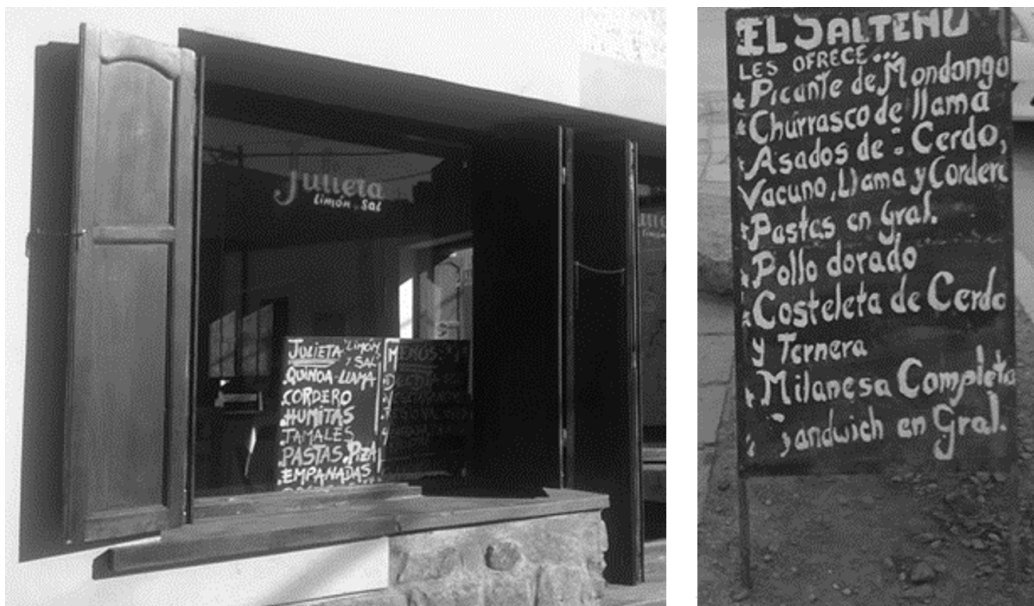 Julieta
Limón y Sal
JULIETA LIMÓN
Y SAL
QUINOA - LLAMA
CORDERO
HUMITAS
TAMALES
PASTAS. PIZA
EMPANADAS
MENÚS
EL SALTEÑO
LES OFRECE...
* Picante de Mondongo
* Churrasco de llama
* Asados de = Cerdo,
Vacuno, Llama y Corder
* Pastas en Gral.
* Pollo dorado
* Costeleta de Cerdo
y Ternera
* Milanesa Completa
* Sandwich en Gral.